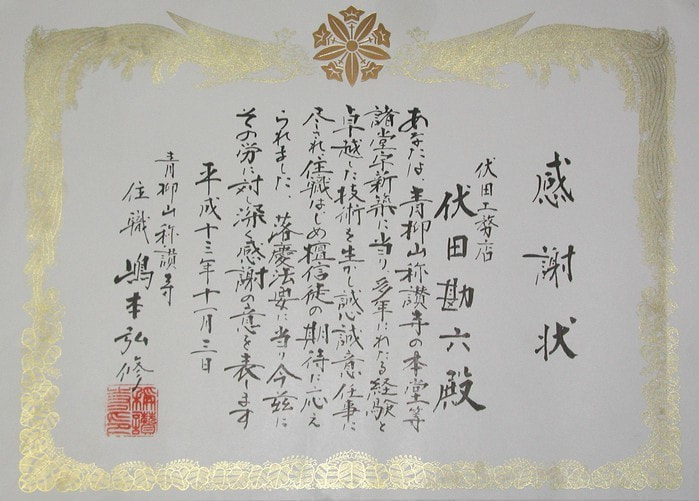 感謝状
伏田工務店
伏田勘六殿
あなたは青柳山称讃寺の本堂等
諸堂宇新築に当り多年にわたる経験と
卓越した技術を生かし誠心誠意仕事に
尽され住職はじめ檀信徒の期待に応え
られました、落慶法要に当り今茲に
その労に対し深く感謝の意を表します
平成十三年十一月三日
青柳山称讃寺
住職 嶋本弘修